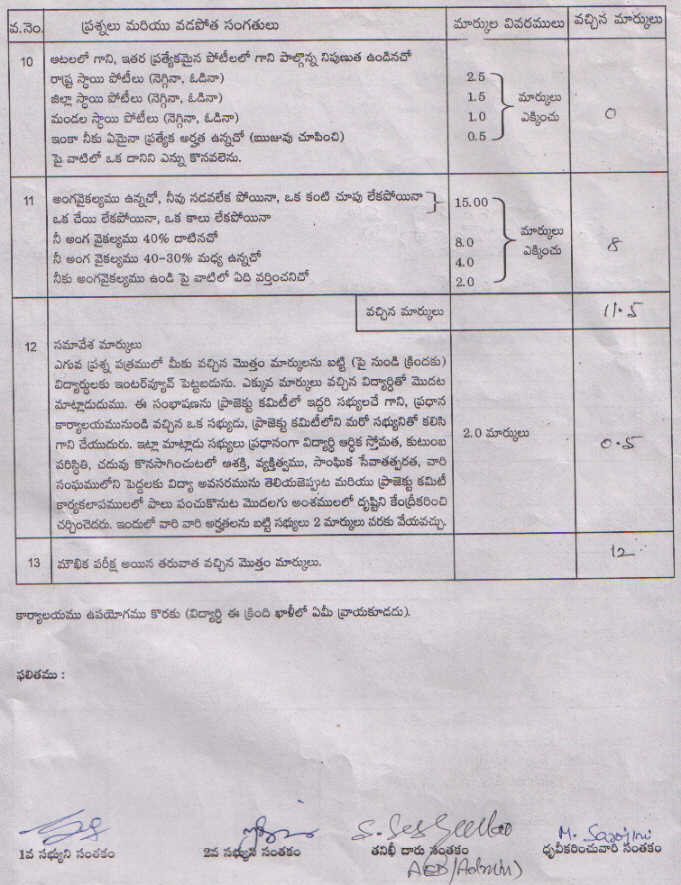 వ.నెం. ప్రశ్నలు మరియు వడపోత సంగతులు మార్కుల వివరములు వచ్చిన మార్కులు
10 ఆటలలో గాని, ఇతర ప్రత్యేకమైన పోటీలలో గాని పాల్గొన్న నిపుణత ఉండినచో
రాష్ట్ర స్థాయి పోటీలు (నెగ్గినా, ఓడినా) 2.5
జిల్లా స్థాయి పోటీలు (నెగ్గినా, ఓడినా) 1.5 మార్కులు
మండల స్థాయి పోటీలు (నెగ్గినా, ఓడినా) 1.0 ఎక్కించు 0
ఇంకా నీకు ఏమైనా ప్రత్యేక అర్హత ఉన్నచో (ఋజువు చూపించి) 0.5
పై వాటిలో ఒక దానిని ఎన్ను కొనవలెను.
11 అంగవైకల్యము ఉన్నచో, నీవు నడవలేక పోయినా, ఒక కంటి చూపు లేకపోయినా 15.00
ఒక చేయి లేకపోయినా, ఒక కాలు లేకపోయినా
నీ అంగ వైకల్యము 40% దాటినచో 8.0 మార్కులు
నీ అంగ వైకల్యము 40-30% మధ్య ఉన్నచో 4.0 ఎక్కించు 8
నీకు అంగవైకల్యము ఉండి పై వాటిలో ఏది వర్తించనిచో 2.0
వచ్చిన మార్కులు 11.5
12 సమావేశ మార్కులు
ఎగువ ప్రశ్న పత్రములో మీకు వచ్చిన మొత్తం మార్కులను బట్టి (పై నుండి క్రిందకు)
విద్యార్థులకు ఇంటర్‌వ్యూవ్ పెట్టబడును. ఎక్కువ మార్కులు వచ్చిన విద్యార్థితో మొదట
మాట్లాడుదుము. ఈ సంభాషణను ప్రాజెక్టు కమిటీలో ఇద్దరి సభ్యులచే గాని, ప్రధాన
కార్యాలయమునుండి వచ్చిన ఒక సభ్యుడు, ప్రాజెక్టు కమిటీలోని మరో సభ్యునితో కలిసి
గాని చేయుదురు. ఇట్లా మాట్లాడు సభ్యులు ప్రధానంగా విద్యార్థి ఆర్ధిక స్తోమత, కుటుంబ 2.0 మార్కులు 0.5
పరిస్థితి, చదువు కొనసాగించుటలో ఆశక్తి, వ్యక్తిత్వము, సాంఘిక సేవాతత్పరత, వారి
సంఘములోని పెద్దలకు విద్యా అవసరమును తెలియజెప్పుట మరియు ప్రాజెక్టు కమిటీ
కార్యకలాపములలో పాలు పంచుకొనుట మొదలగు అంశములలో దృష్టిని కేంద్రీకరించి
చర్చించెదరు. ఇందులో వారి వారి అర్హతలను బట్టి సభ్యులు 2 మార్కులు వరకు వేయవచ్చు.
13 మౌఖిక పరీక్ష అయిన తరువాత వచ్చిన మొత్తం మార్కులు. 12
కార్యాలయము ఉపయోగము కొరకు (విద్యార్థి ఈ క్రింది ఖాళీలో ఏమీ వ్రాయకూడదు).
ఫలితము :
M. Sarojini
1వ సభ్యుని సంతకం 2వ సభ్యుని సంతకం తనిఖీ దారు సంతకం ధృవీకరించువారి సంతకం